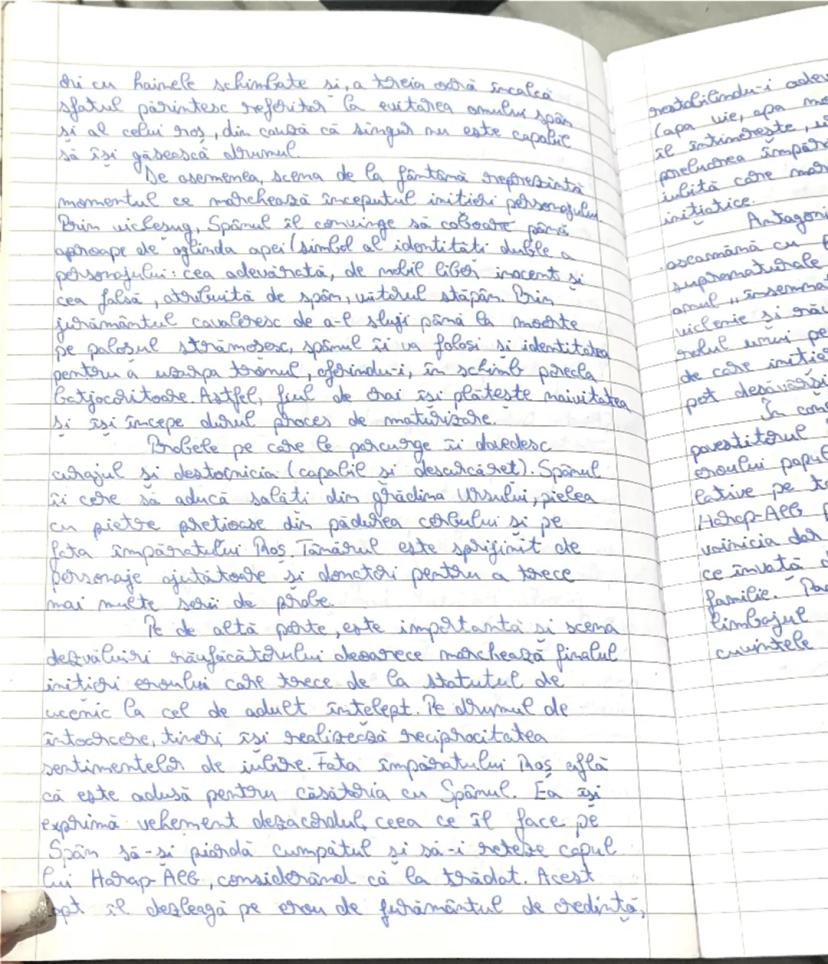 ori cu hainele schimbate si, a treia oară încalcă
sfatul părintesc referitor la evitarea omului spân
și al celui roș, din cauză că singur nu este capabil
să își găsească drumul.
De asemenea, scena de la fântână reprezintă
momentul ce marchează începutul initieri personajului
Prin viclesug, Spânul îl convinge să coboare până
aproape de oglinda apei (simbol al identităti duble a
personajului: cea adevărată, de nobil liber inocent și
cea falsă, atribuită de spân, viitorul stăpân. Prin
jurământul cavaleresc de a-l sluji până la moarte
pe paloșul strămosesc, spânul îi va folosi si identitatea
pentru a uzurpa tronul, oferindu-i, în schimb porecla
batjocoritoare. Astfel, fiul de crai își plătește naivitatea
și își începe durul proces de maturizare.
Probele pe care le parcurge îi dovedesc
curajul și destoinicia (capabil și descurcăret). Spânul
îi cere să aducă salăti din grădina Ursului, pielea
cu pietre pretioase din pădurea cerbului și pe
fata împăratului Roș. Tânărul este sprijinit de
personaje ajutătoare și donatori pentru a trece
mai multe serii de probe.
Pe de altă parte, este importantă și scena
dezvăluiri răufăcătorului deoarece marchează finalul
initieri eroului care trece de la statutul de
ucenic la cel de adult întelept. Pe drumul de
întoarcere, tineri își realizează reciprocitatea
sentimentelor de iubire. Fata împăratului Roș află
că este adusă pentru căsătoria cu Spânul. Ea își
exprimă vehement dezacordul, ceea ce îl face pe
Spân să-și piardă cumpătul și să-i reteze capul
lui Harap-Alb, considerând că la trădat. Acest
apt îl dezleagă pe erou de jurământul de credință,
restabilindu-i adev
(apa vie, apa mo
îl întinerește, i
preluarea împăr
iubită care mar
inițiatice.
Antagoni
aseamănă cu
supranaturale
omul „însemna
viclenie și rău
rolul unui pe
de care initie
pot desăvârsi
În con
povestitorul
eroului popul
lative pe t
Harap-Alb
voinicia dar
ce învată
familie.
limbajul
cuvintele